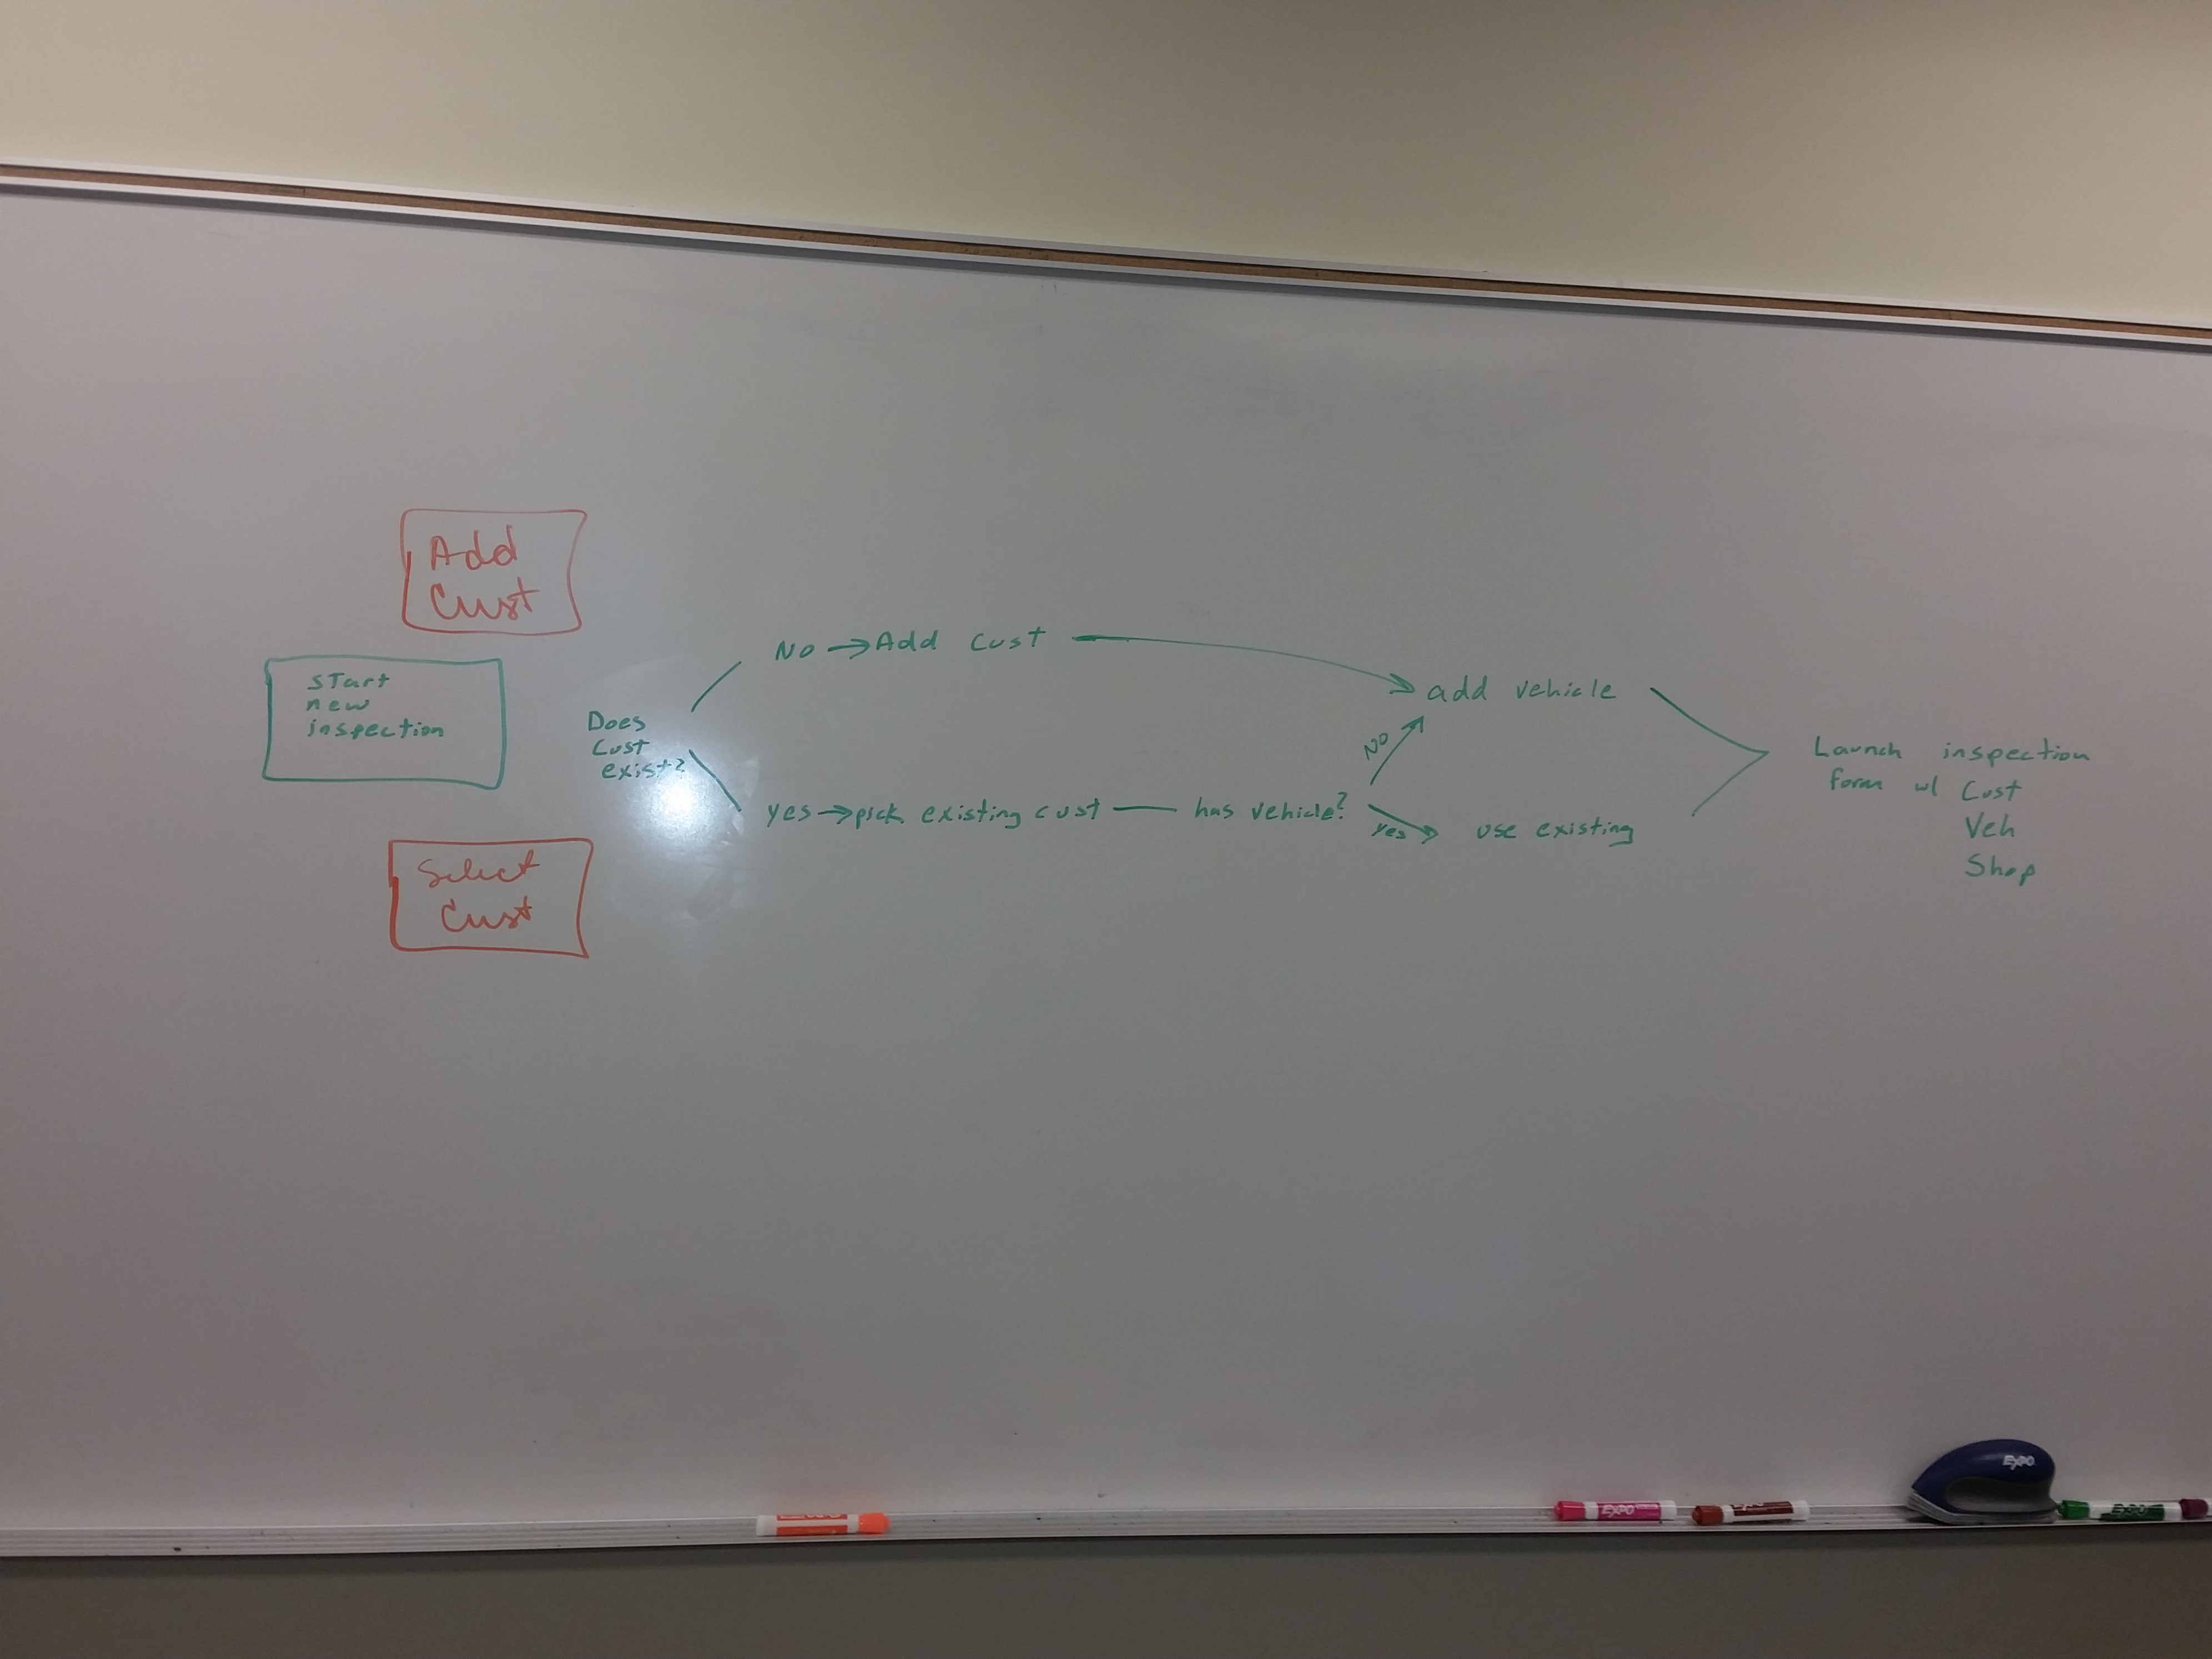 Add
Cust
START
new
inspection
Does
Cust
exist?
No → Add Cust
add vehicle
No
yes → pick existing cust
has vehicle?
yes
use existing
Launch inspection
form w/ Cust
Veh
Shop
Select
Cust
EXPO
EXPO
EXPO